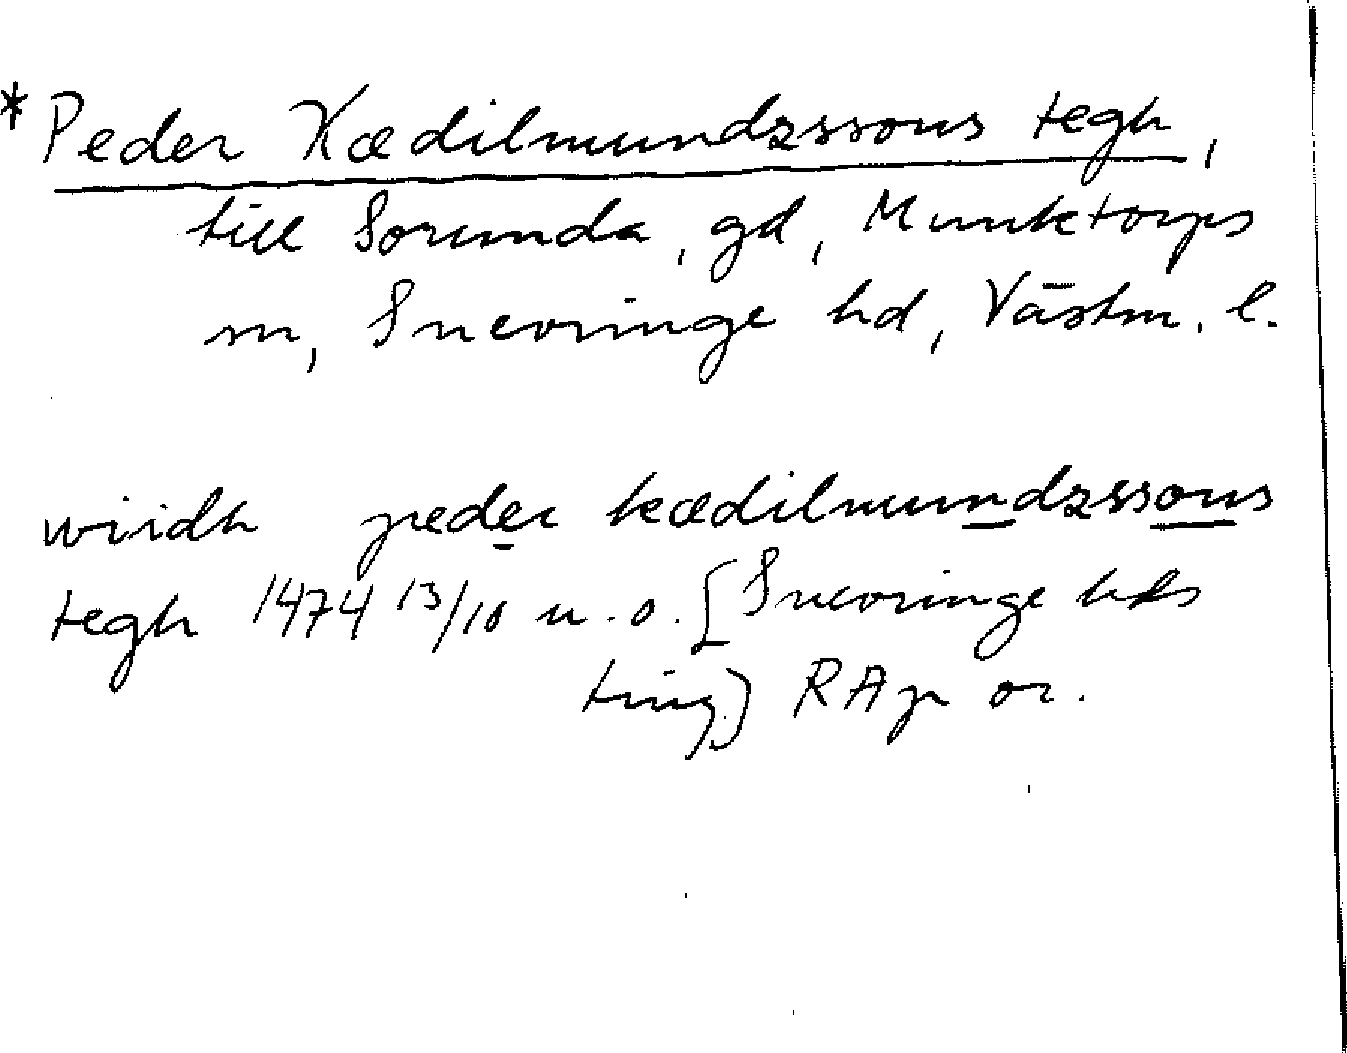 *Peder Kædilmundzssons tegh,
till Sorunda, gd, Munktorps
sn, Snevringe hd, Västm. l.
widh peder kædilmundzssons
tegh 1474 13/10 u. o. [Snevringe hds
ting] RAp or.